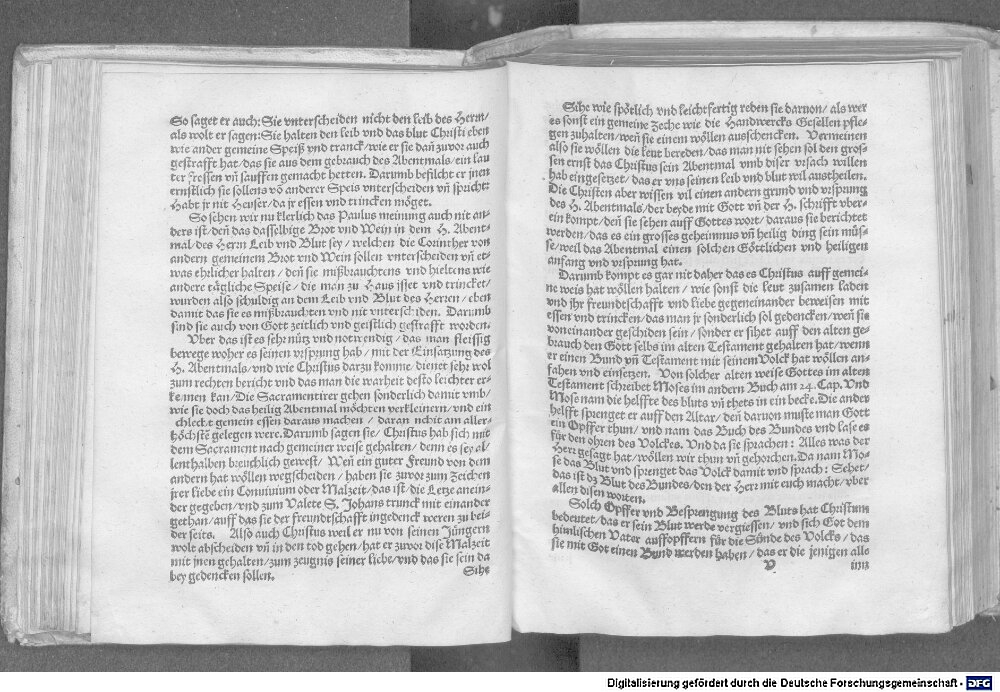 So saget er auch: Sie vnterscheiden nicht den leib des Herrn/
als wolt er sagen: Sie halten den leib vnd das blut Christi eben
wie ander gemeine Speiß vnd tranck/ wie er sie dañ zuvor auch
gestrafft hat/ das sie aus dem gebrauch des Abentmals/ ein lau
ter fressen vñ sauffen gemacht hetten. Darumb befilcht er jnen
ernstlich sie sollens vō anderer Speis vnterscheiden vñ spricht:
Habt jr nit Heuser/ da jr essen vnd trincken möget.
So sehen wir nu klerlich das Paulus meinung auch nit an-
ders ist/ deñ das dasselbige Brot vnd Wein in dem H. Abent-
mal/ des Herrn Leib vnd Blut sey/ welchen die Corinther von
andern gemeinem Brot vnd Wein sollen vnterscheiden vñ et-
was ehrlicher halten/ deñ sie mißbrauchtens vnd hieltens wie
andere tägliche Speise/ die man zu Haus isset vnd trincket/
wurden also schuldig an dem Leib vnd Blut des Herren/ eben
damit das sie es mißbrauchten vnd nit vnterschiden. Darumb
sind sie auch von Gott zeitlich vnd geistlich gestrafft worden.
Vber das ist es sehr nütz vnd notwendig/ das man fleissig
bewege woher es seinen vrsprung hab/ mit der Einsatzung des
H. Abentmals/ vnd wie Christus darzu komme/ dienet sehr wol
zum rechten bericht vnd das man die warheit desto leichter er-
kennen kan/ Die Sacramentirer gehen sonderlich damit vmb/
wie sie doch das heilig Abentmal möchten verkleinern/ vnd ein
schlecht gemein essen daraus machen/ daran nicht am aller-
höchstē gelegen were. Darumb sagen sie/ Christus hab sich mit
dem Sacrament nach gemeiner weise gehalten/ denn es sey al-
lenthalben breuchlich gewest/ Weñ ein guter Freund von dem
andern hat wöllen wegscheiden/ haben sie zuvor zum Zeichen
jrer liebe ein Conuiuium oder Malzeit/ das ist/ die Letze anein-
der gegeben/ vnd zum Valete S. Johans trunck mit einander
gethan/ auff das sie der freundtschafft ingedenck weren zu bei-
der seits. Also auch Christus weil er nu von seinen Jüngern
wolt abscheiden vñ in den tod gehen/ hat er zuvor dise Malzeit
mit jnen gehalten/ zum zeugnis seiner liebe/ vnd das sie sein da
bey gedencken sollen.
Sihe
Sihe wie spötlich vnd leichtfertig reden sie daruon/ als wer
es sonst ein gemeine Zeche wie die Handwercks Gesellen pfle-
gen zuhalten/ weñ sie einem wöllen ausschencken. Vermeinen
also sie wöllen die leut bereden/ das man nit sehen sol den gros
sen ernst das Christus sein Abentmal vmb diser vrsach willen
hab eingesetzet/ das er vns seinen leib vnd blut wil austheilen.
Die Christen aber wissen vil einen andern grund vnd vrsprung
des H. Abentmals/ der beyde mit Gott vñ der H. schrifft vber-
ein kompt/ deñ sie sehen auff Gottes wort/ daraus sie berichtet
werden/ das es ein grosses geheimnus vñ heilig ding sein müs-
se/ weil das Abentmal einen solchen Göttlichen vnd heiligen
anfang vnd vrsprung hat.
Darumb kompt es gar nit daher das es Christus auff gemei-
ne weis hat wöllen halten/ wie sonst die leut zusamen laden
vnd jhr freundtschafft vnd liebe gegeneinander beweisen mit
essen vnd trincken/ das man jr sonderlich sol gedencken/ weñ sie
voneinander geschiden sein/ sonder er sihet auff den alten ge-
brauch den Gott selbs im alten Testament gehalten hat/ wenn
er einen Bund vñ Testament mit seinem Volck hat wöllen an-
fahen vnd einsetzen. Von solcher alten weise Gottes im alten
Testament schreibet Moses im andern Buch am 24. Cap. Vnd
Mose nam die helffte des bluts vñ thets in ein becke. Die ander
helfft sprenget er auff den Altar/ deñ daruon muste man Gott
ein Opffer thun/ vnd nam das Buch des Bundes vnd lase es
für den ohren des Volckes. Vnd da sie sprachen: Alles was der
Herr gesagt hat/ wöllen wir thun vñ gehorchen. Da nam Mo-
se das Blut vnd sprenget das Volck damit vnd sprach: Sehet/
das ist dz Blut des Bundes/ den der Herr mit euch macht/ vber
allen disen worten.
Solch Opffer vnd Besprengung des Bluts hat Christum
bedeutet/ das er sein Blut werde vergiessen/ vnd sich Got dem
himlischen Vater auffopffern für die Sünde des Volcks/ das
sie mit Got einen Bund werden haben/ das er die jenigen alls
V
Digitalisierung gefördert durch die Deutsche Forschungsgemeinschaft - DFG